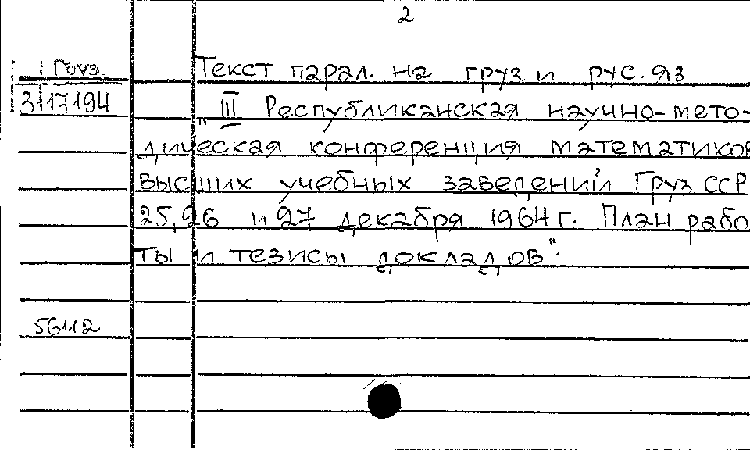 2
Груз.
Текст парал. на груз и рус. яз
3117194
„III Республиканская научно-мето-
дическая конференция математиков
высших учебных заведений Груз ССР
25, 26 и 27 декабря 1964 г. План рабо
ты и тезисы докладов".
56112